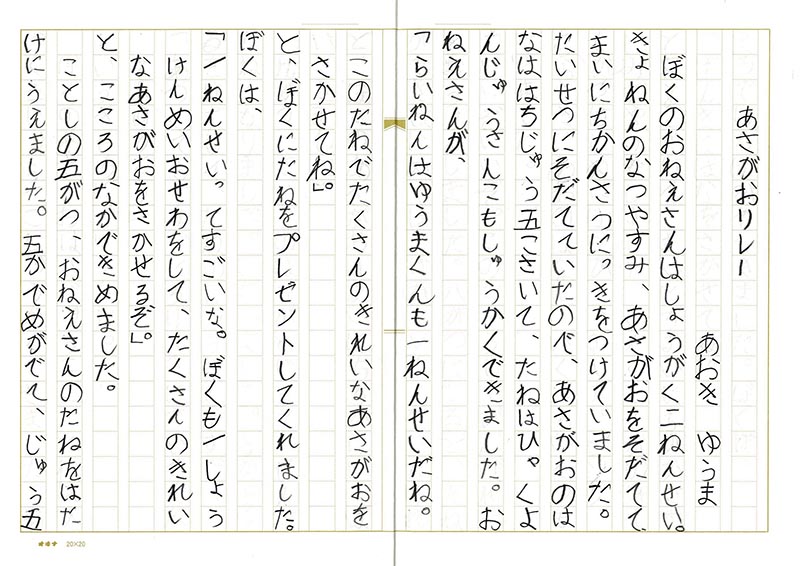 あさがおリレー
あおき　ゆうま
ぼくのおねえさんはしょうがく二ねんせい。
きょねんのなつやすみ、あさがおをそだてて
まいにちかんさつにっきをつけていました。
たいせつにそだてていたので、あさがおのは
なははちじゅう五こさいて、たねはひゃくよ
んじゅうさんこもしゅうかくできました。お
ねえさんが、
「らいねんはゆうまくんも一ねんせいだね。
このたねでたくさんのきれいなあさがおを
さかせてね」。
と、ぼくにたねをプレゼントしてくれました。
ぼくは、
「一ねんせいってすごいな。ぼくも一しょう
けんめいおせわをして、たくさんのきれい
なあさがおをさかせるぞ」。
と、こころのなかできめました。
ことしの五がつ、おねえさんのたねをはた
けにうえました。五かでめがでて、じゅう五
20×20